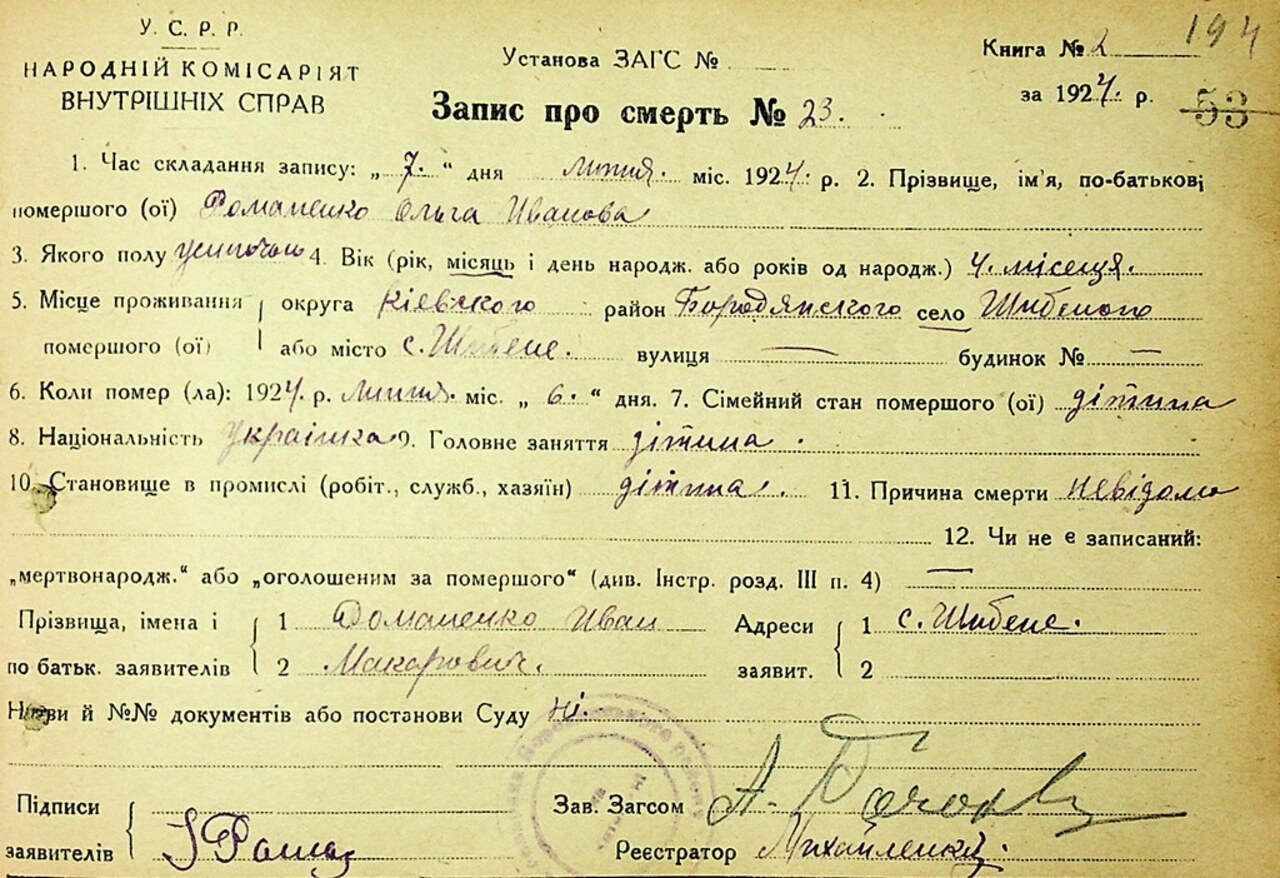 У. С. Р. Р.
НАРОДНІЙ КОМІСАРІЯТ
ВНУТРІШНІХ СПРАВ
Установа ЗАГС №
Книга № 2
194
за 1924. р.
53
Запис про смерть № 23.
1. Час складання запису: „ 7. “ дня липня. міс. 1924. р. 2. Прізвище, ім'я, по-батькові
помершого (ої) Романенко Ольга Иванова
3. Якого полу 4. Вік (рік, місяць і день народж. або років од народж.) 4. місеця.
5. Місце проживання округа Кіевского район Бородянского село Шибеного
помершого (ої) або місто с. Шибене. вулиця — будинок № —
6. Коли помер (ла): 1924. р. липня. міс. „ 6. “ дня. 7. Сімейний стан помершого (ої) дітина
8. Національність Українка 9. Головне заняття дітина.
10. Становище в промислі (робіт., служб., хазяїн) дітина. 11. Причина смерти невідома
12. Чи не є записаний:
„мертвонародж.“ або „оголошеним за помершого“ (див. Інстр. розд. III п. 4) —
Прізвища, імена і 1 Романенко Иван Адреси 1 с. Шибене.
по батьк. заявителів 2 Макарович. заявит. 2
Назви й №№ документів або постанови Суду ні.
Підписи Зав. Загсом А.
заявителів Реєстратор Михайленко.